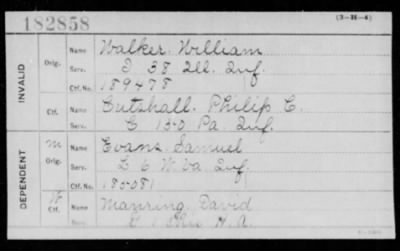 182858
(3-16-4)
INVALID
Orig.
Name Walker, William
Serv. I 38 Ill. Inf.
Ctf. No. 189478
Ctf.
Name Cutshall, Philip C.
Serv. C 150 Pa. Inf.
DEPENDENT
W
Orig.
Name Evans, Samuel
Serv. C 6 W Va Inf.
Ctf. No. 180081
W
Ctf.
Name Manring, David
Serv. Ohio H. A.